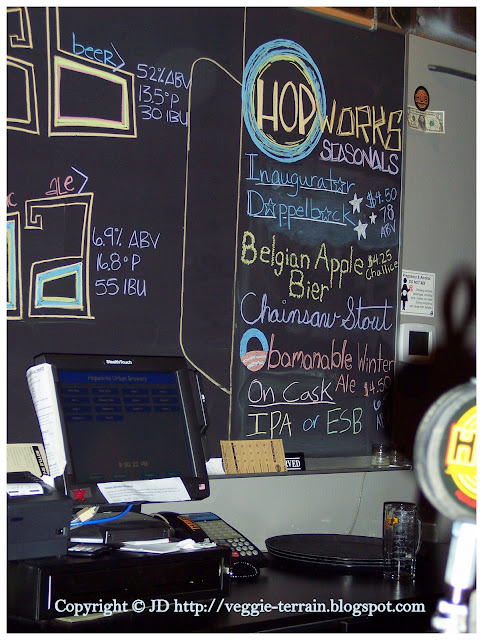 beer
5.2% ABV
13.5°P
30 IBU
ale
6.9% ABV
16.8°P
55 IBU
HOPWORKS
SEASONALS
Inaugurator
Doppelbock
$4.50
7.8
ABV
Belgian Apple
Bier
$4.25
Challice
Chainsaw Stout
Obamanable Winter
Ale $4.50
On Cask
IPA or ESB
Hopworks Urban Brewery
Copyright © JD http://veggie-terrain.blogspot.com